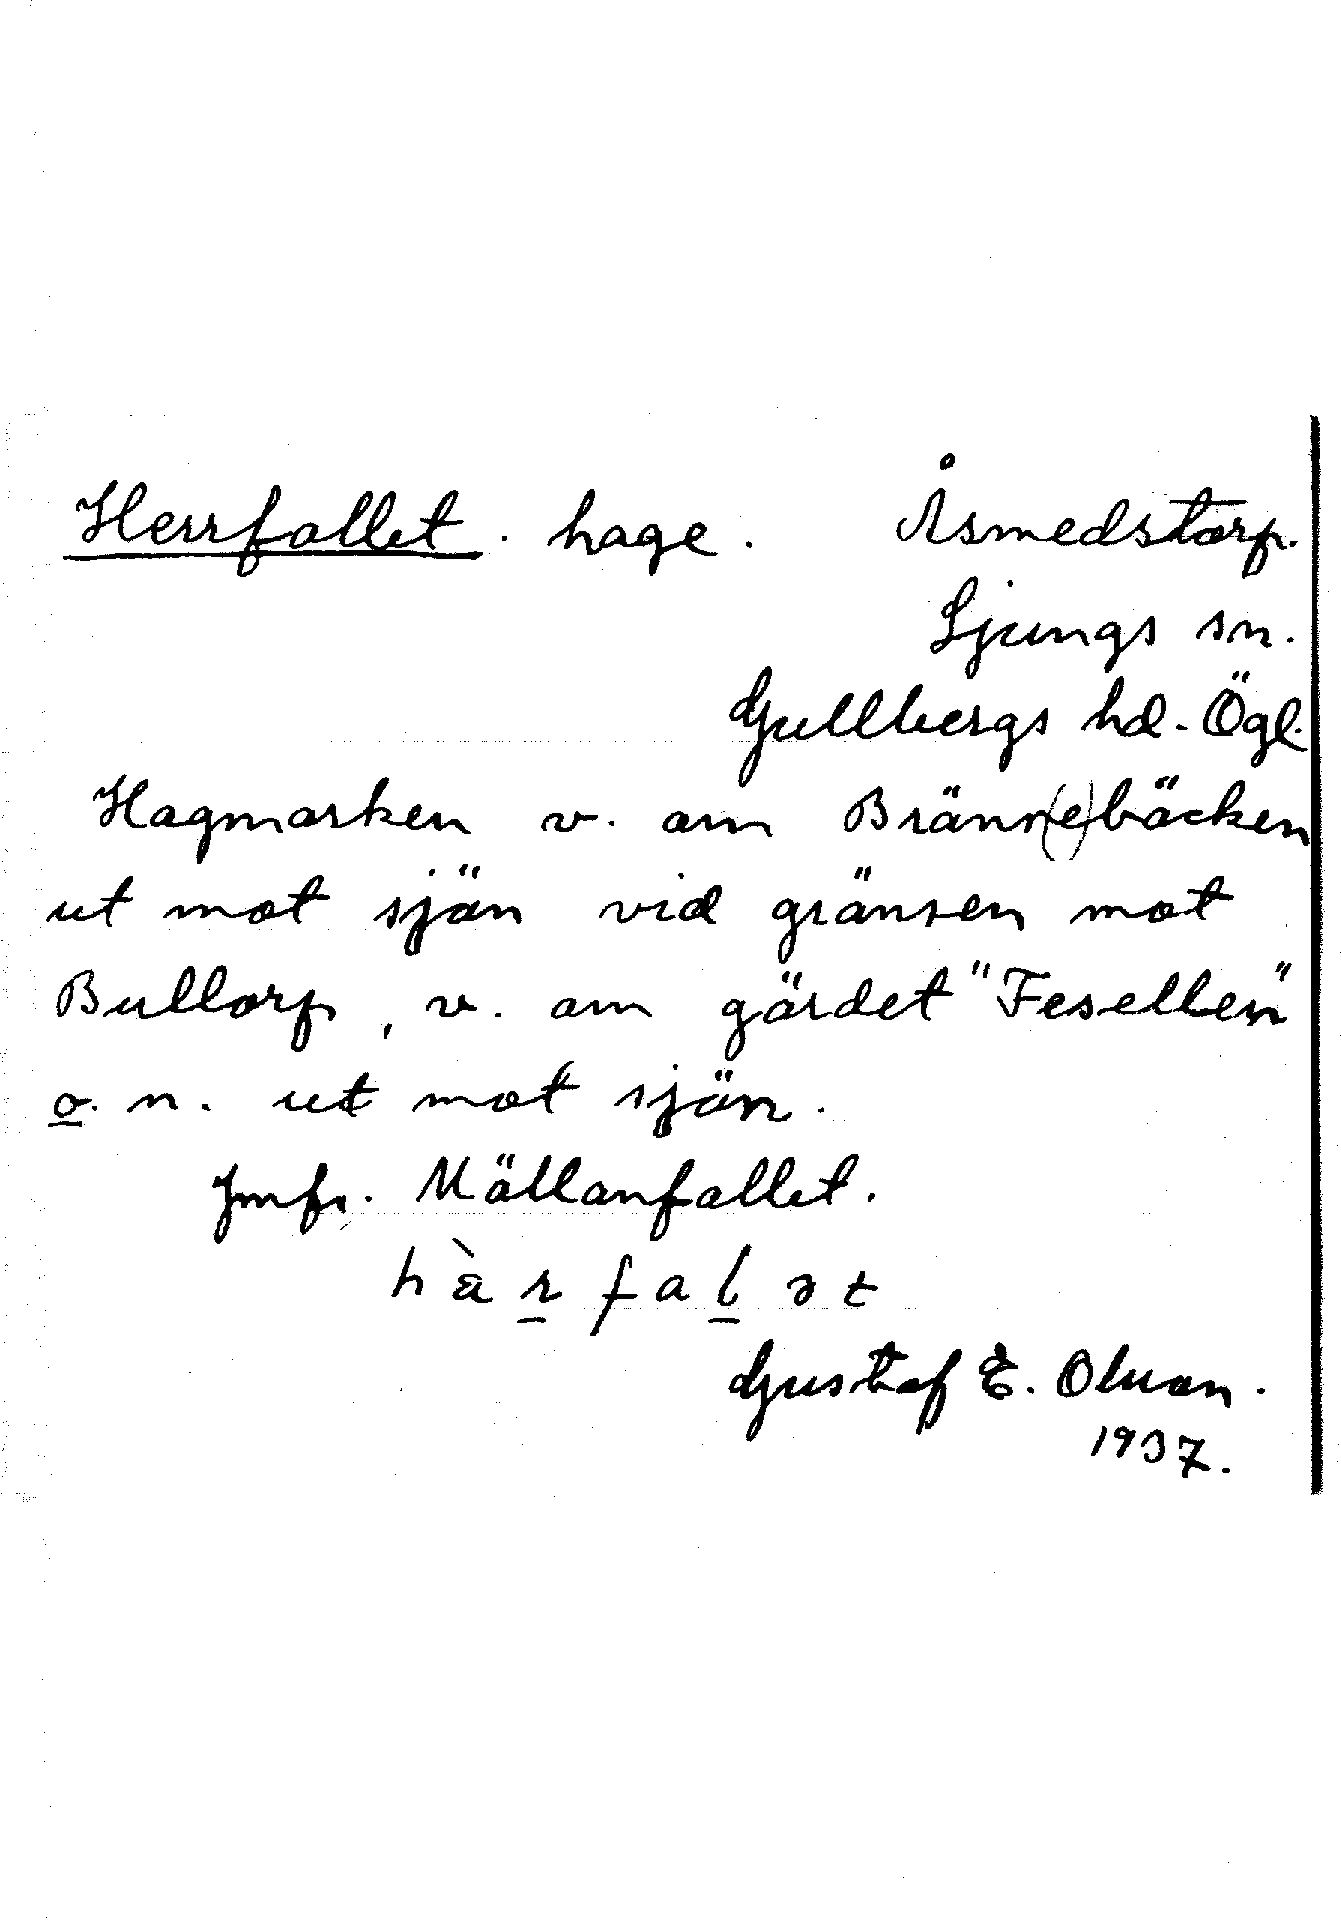 Herrfallet. hage. Åsmedstorp.
Ljungs sn.
Gullbergs hd. Ögl.
Hagmarken v. om Bränn(e)bäcken
ut mot sjön vid gränsen mot
Bullorp, v. om gärdet "Fesellen"
o. n. ut mot sjön.
Jmfr. Mällanfallet.
hàrfalət
Gustaf E. Olson.
1937.